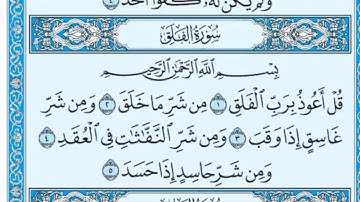 وَلَمْ يَكُن لَّهُۥ كُفُوًا أَحَدٌۢ ٤
سُورَةُ الفَلَقِ
بِسْمِ اللَّهِ الرَّحْمَٰنِ الرَّحِيمِ
قُلْ أَعُوذُ بِرَبِّ ٱلْفَلَقِ ١ مِن شَرِّ مَا خَلَقَ ٢ وَمِن شَرِّ
غَاسِقٍ إِذَا وَقَبَ ٣ وَمِن شَرِّ ٱلنَّفَّٰثَٰتِ فِى ٱلْعُقَدِ ٤
وَمِن شَرِّ حَاسِدٍ إِذَا حَسَدَ ٥